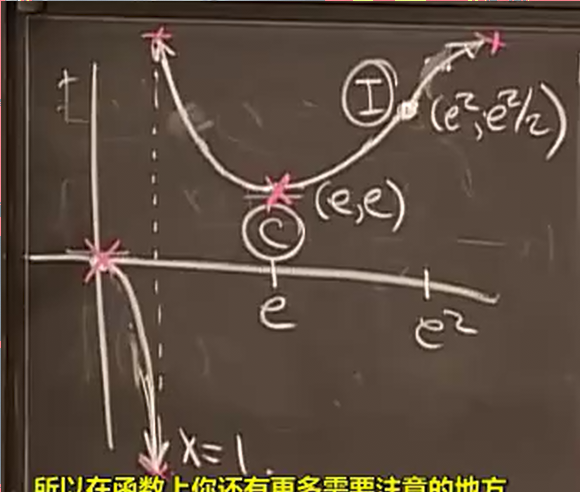 I
(e², e²/2)
(e,e)
C
e
e²
x=1.
所以在函数上你还有更多需要注意的地方